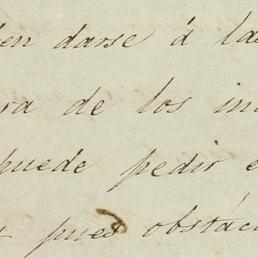 en darse á las
ra de los in
puede pedir e
pues obstác